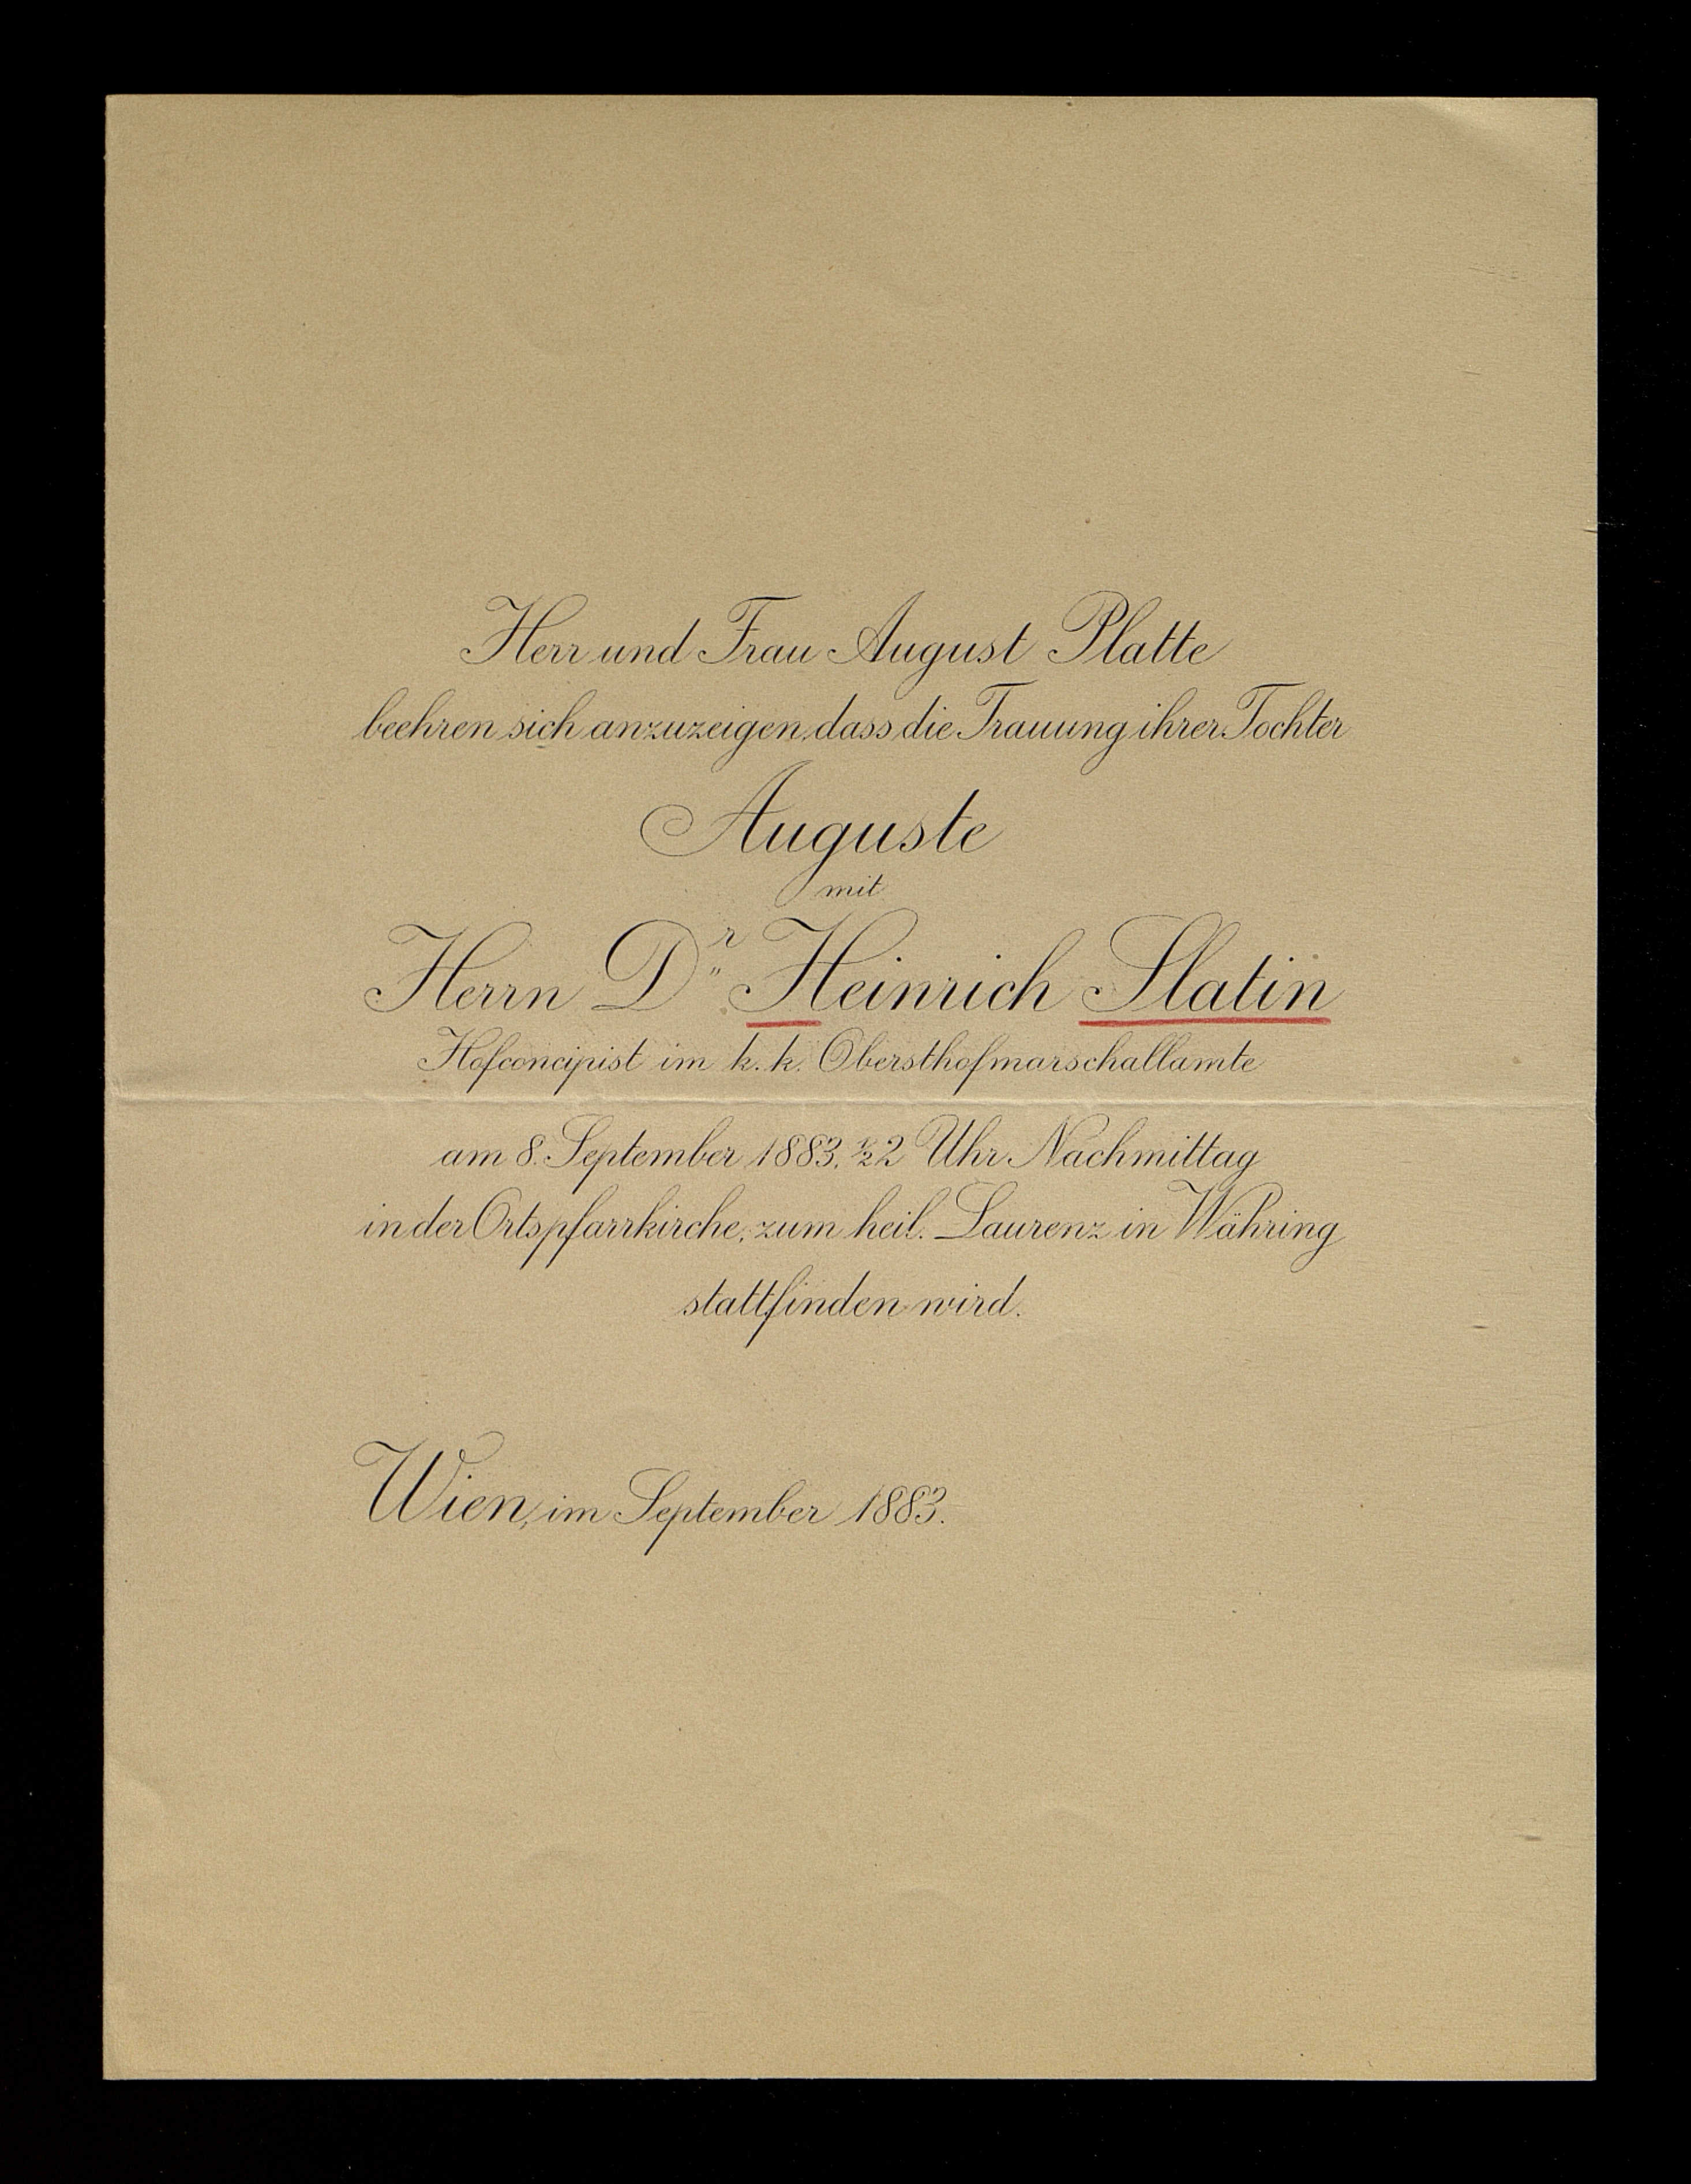 Herr und Frau August Platte
beehren sich anzuzeigen, dass die Trauung ihrer Tochter
Auguste
mit
Herrn Dr. Heinrich Slatin
Hofconcipist im k. k. Obersthofmarschallamte
am 8. September 1883, ½2 Uhr Nachmittag
in der Ortspfarrkirche, zum heil. Laurenz in Währing
stattfinden wird.
Wien, im September 1883.